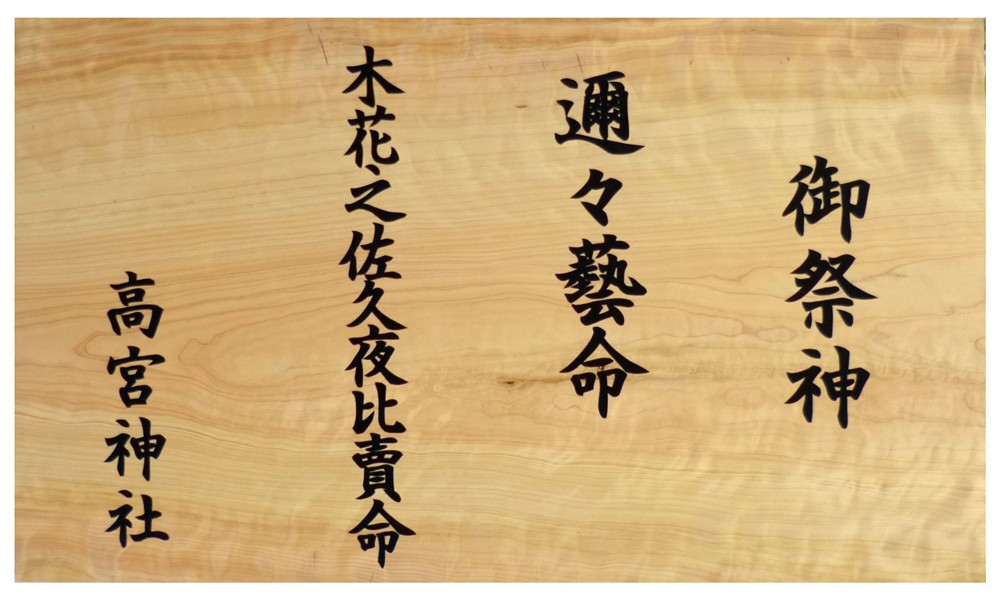 御祭神
邇々藝命
木花之佐久夜比賣命
高宮神社